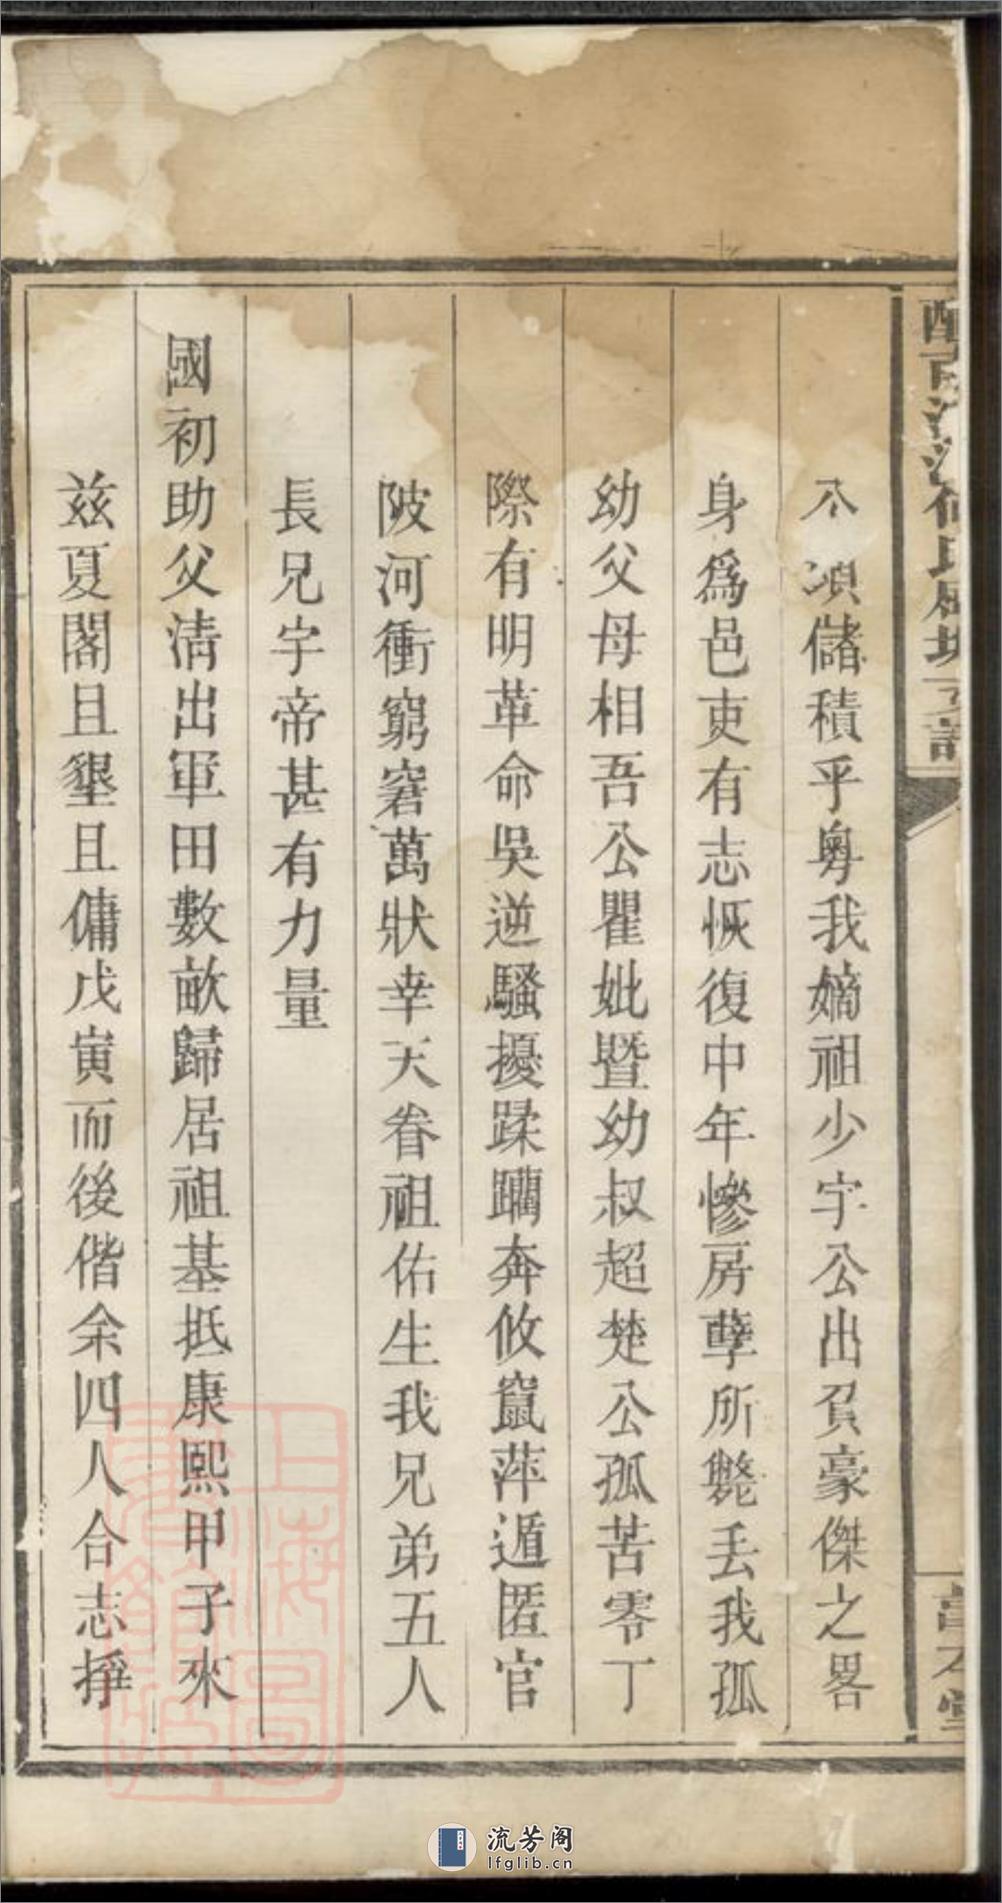 不須儲積乎粵我嫡祖少宇公出負豪傑之畧
身為邑吏有志恢復中年慘房孽所斃丟我孤
幼父母相吾公瞿妣暨幼叔超楚公孤苦零丁
際有明革命吳逆騷擾蹂躪奔攸竄萍遁匿官
陂河衝窮窘萬狀幸天眷祖佑生我兄弟五人
長兄宇帝甚有力量
國初助父清出軍田數畝歸居祖基抵康熙甲子來
兹夏閣且墾且傭戊寅而後偕余四人合志掙
上海圖書館藏
流芳阁
lfglib.cn